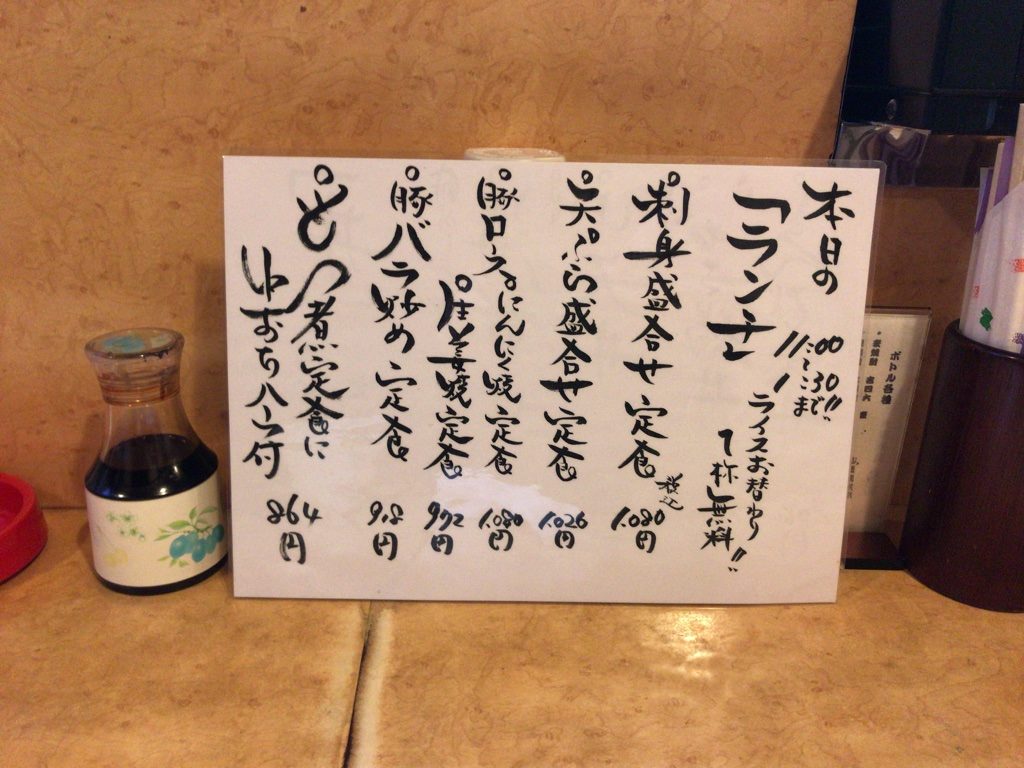 本日の
「ランチ」
11:00
1:30!!
まで
ライスお替わり
1杯無料!!
°刺身盛合せ定食 税込 1.080円
°天ぷら盛合せ定食 1.026円
°豚ロースにんにく焼定食 1.080円
°生姜焼定食 972円
°豚バラ炒め定食 918円
°もつ煮定食に
付 864円
ボトル各種